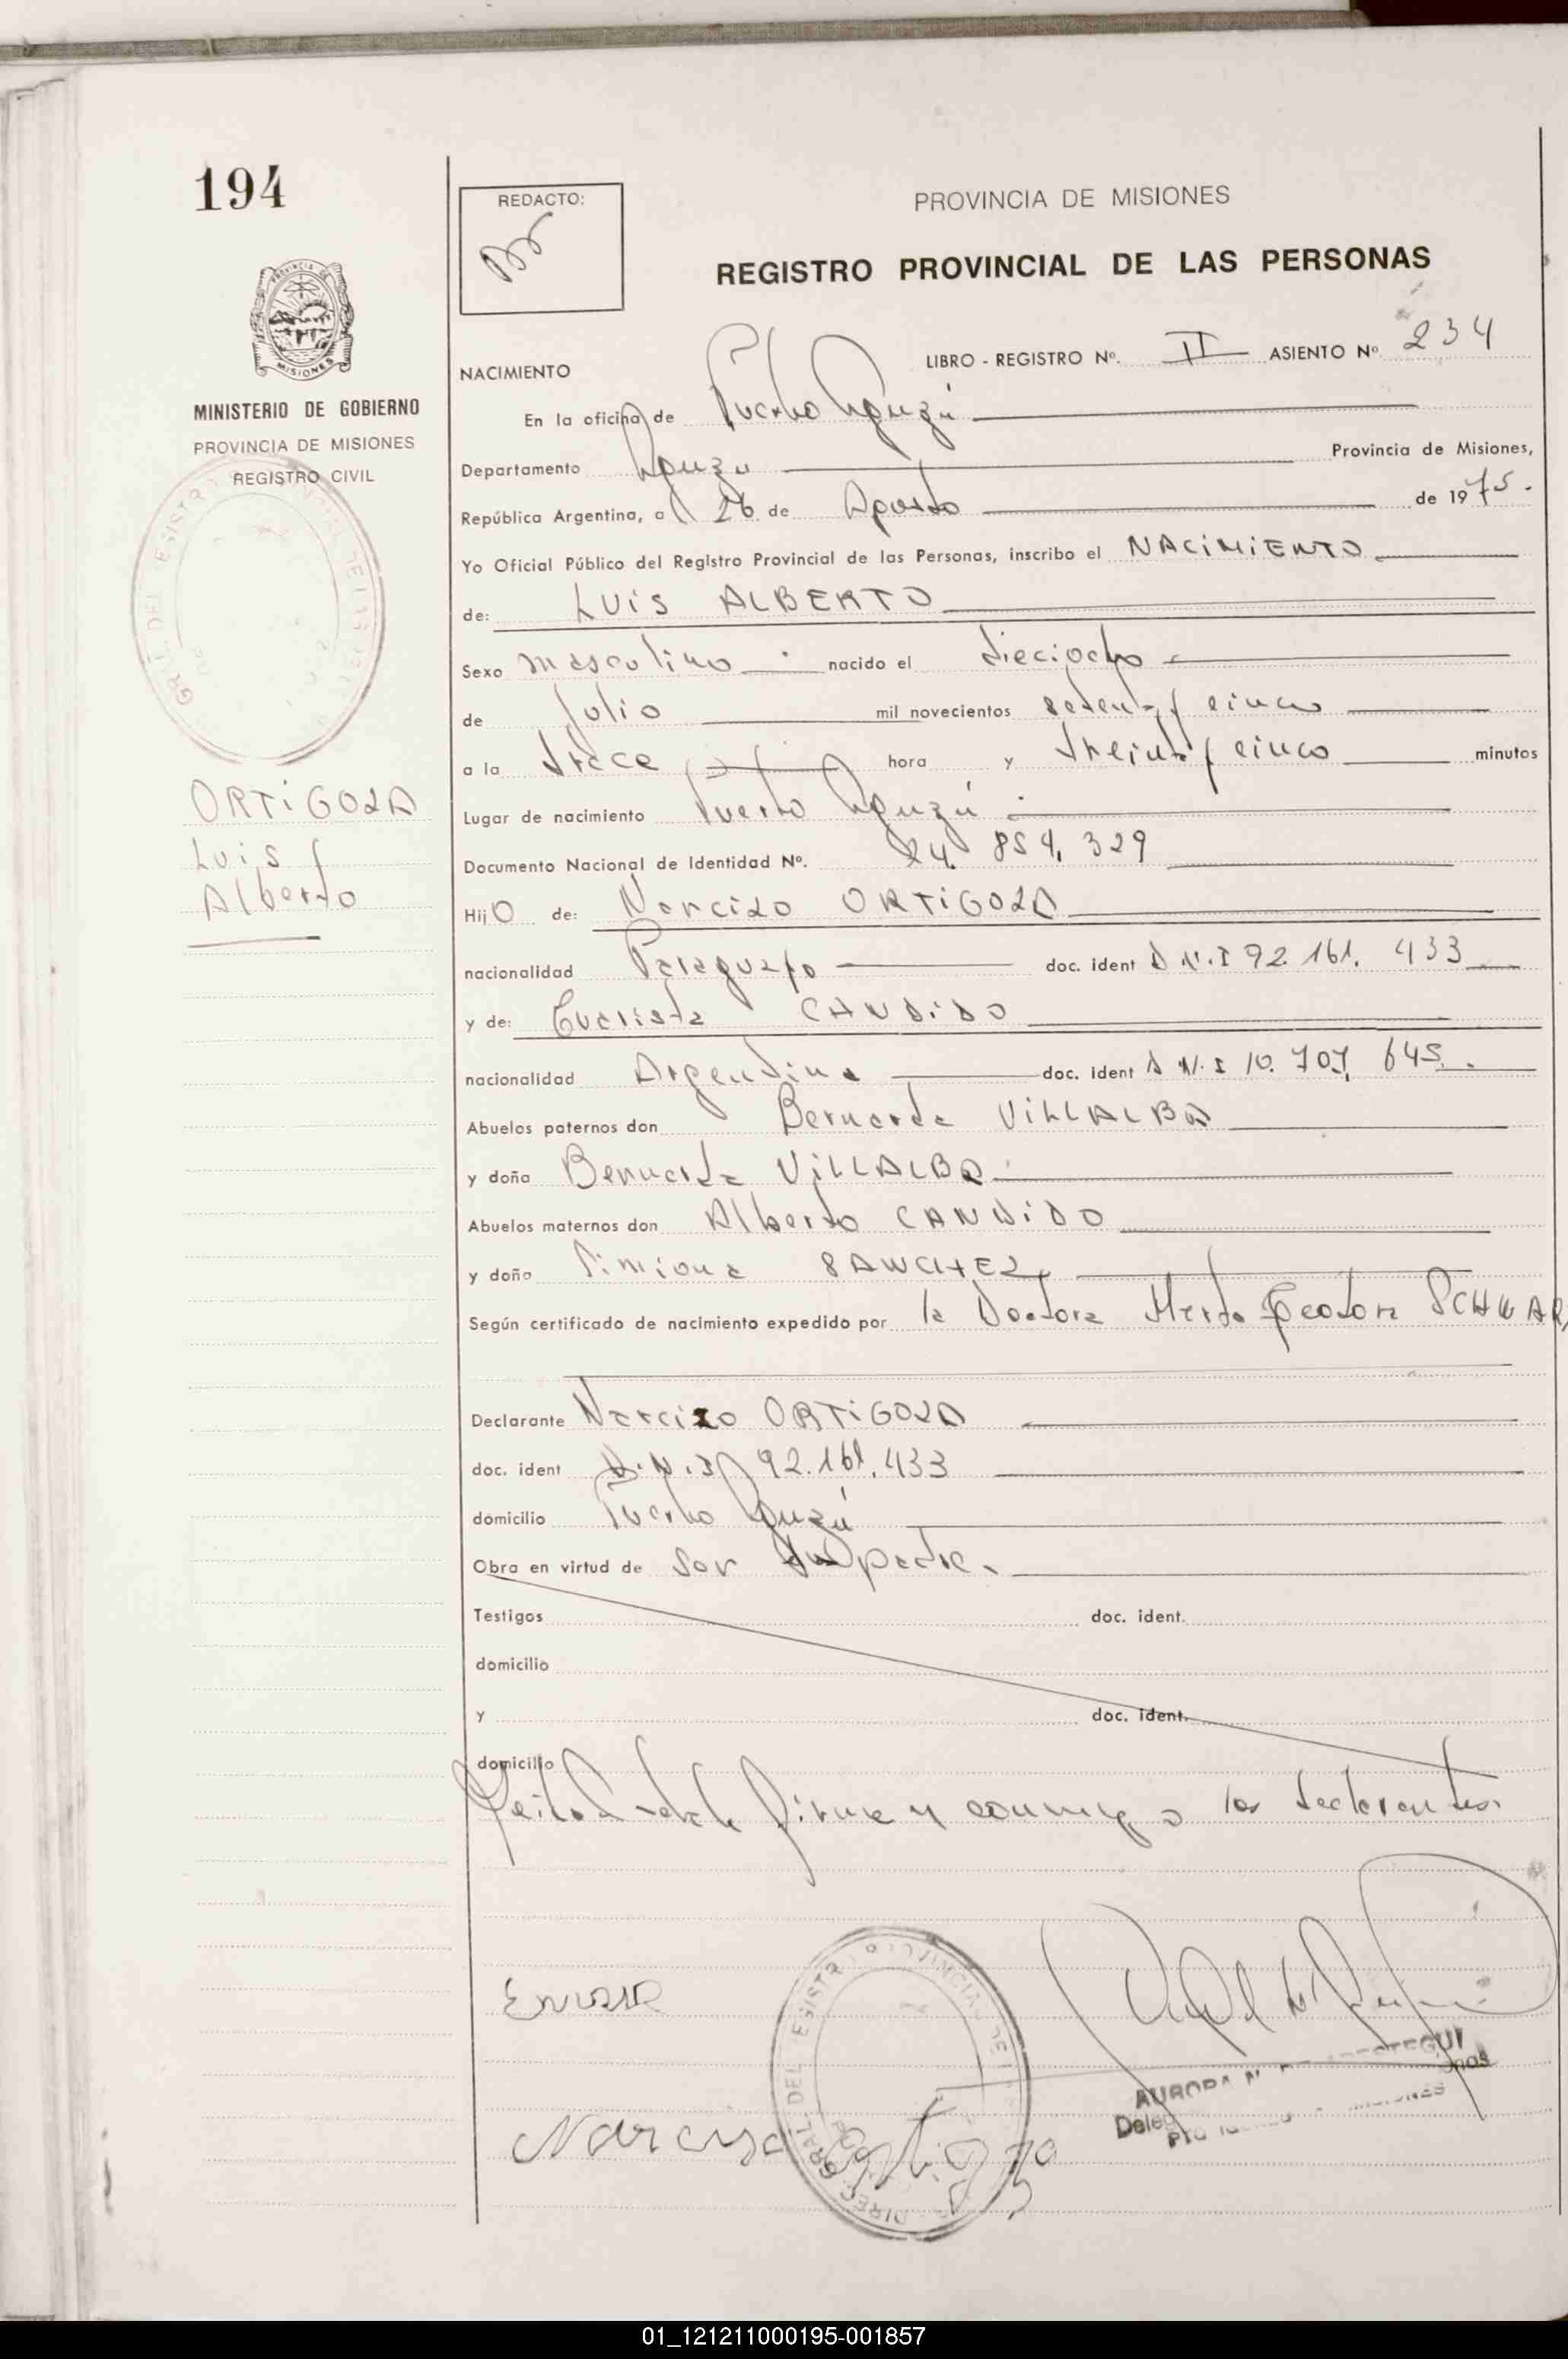 194
REDACTO:
PROVINCIA DE MISIONES
REGISTRO PROVINCIAL DE LAS PERSONAS
MISIONES
MINISTERIO DE GOBIERNO
PROVINCIA DE MISIONES
REGISTRO CIVIL
ORTiGOZA
Luis
Alberto
NACIMIENTO
LIBRO - REGISTRO Nº. II ASIENTO Nº 234
En la oficina de Puerto Iguazú
Departamento Iguazu Provincia de Misiones,
República Argentina, a 26 de Agosto de 1975.
Yo Oficial Público del Registro Provincial de las Personas, inscribo el NACiMiENTO
de: LUiS ALBERTO
Sexo masculino nacido el dieciocho
de Julio mil novecientos setenta y cinco
a la trece hora y treinta y cinco minutos
Lugar de nacimiento Puerto Iguazú
Documento Nacional de Identidad Nº. 24. 854. 329
HijO de: Narcizo ORTiGOZA
nacionalidad Paraguayo doc. ident D.N.I 92.161.433
y de: Evarista CANDiDO
nacionalidad Argentina doc. ident D.N.I 10.707.645.
Abuelos paternos don Bernarda ViLLALBA
y doña Bernarda ViLLALBA
Abuelos maternos don Alberto CANDiDO
y doña Simiona SANCHEZ
Según certificado de nacimiento expedido por la Doctora Marta Teodora SCHWAR
Declarante Narcizo ORTiGOZA
doc. ident D.N.I 92.161.433
domicilio Puerto Iguazú
Obra en virtud de Ser padre.
Testigos doc. ident.
domicilio
y doc. ident.
domicilio
Leida el acta la firman conmigo los declarantes
Narciso Ortigoza
AURORA
01_121211000195-001857